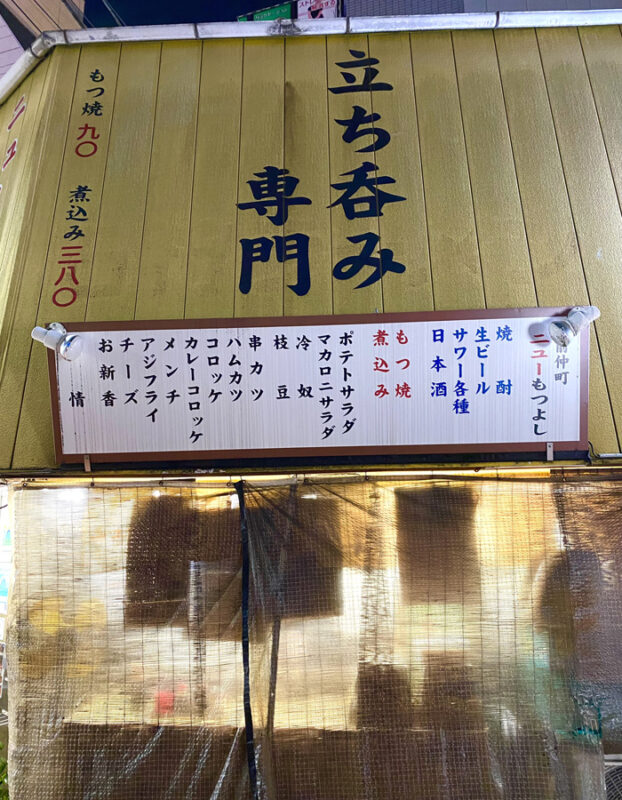 立ち呑み
専門
もつ焼 九〇
煮込み 三八〇
仲町
ニューもつよし
焼酎
生ビール
サワー各種
日本酒
もつ焼
煮込み
ポテトサラダ
マカロニサラダ
冷奴
枝豆
串カツ
ハムカツ
コロッケ
カレーコロッケ
メンチ
アジフライ
チーズ
お新香
情